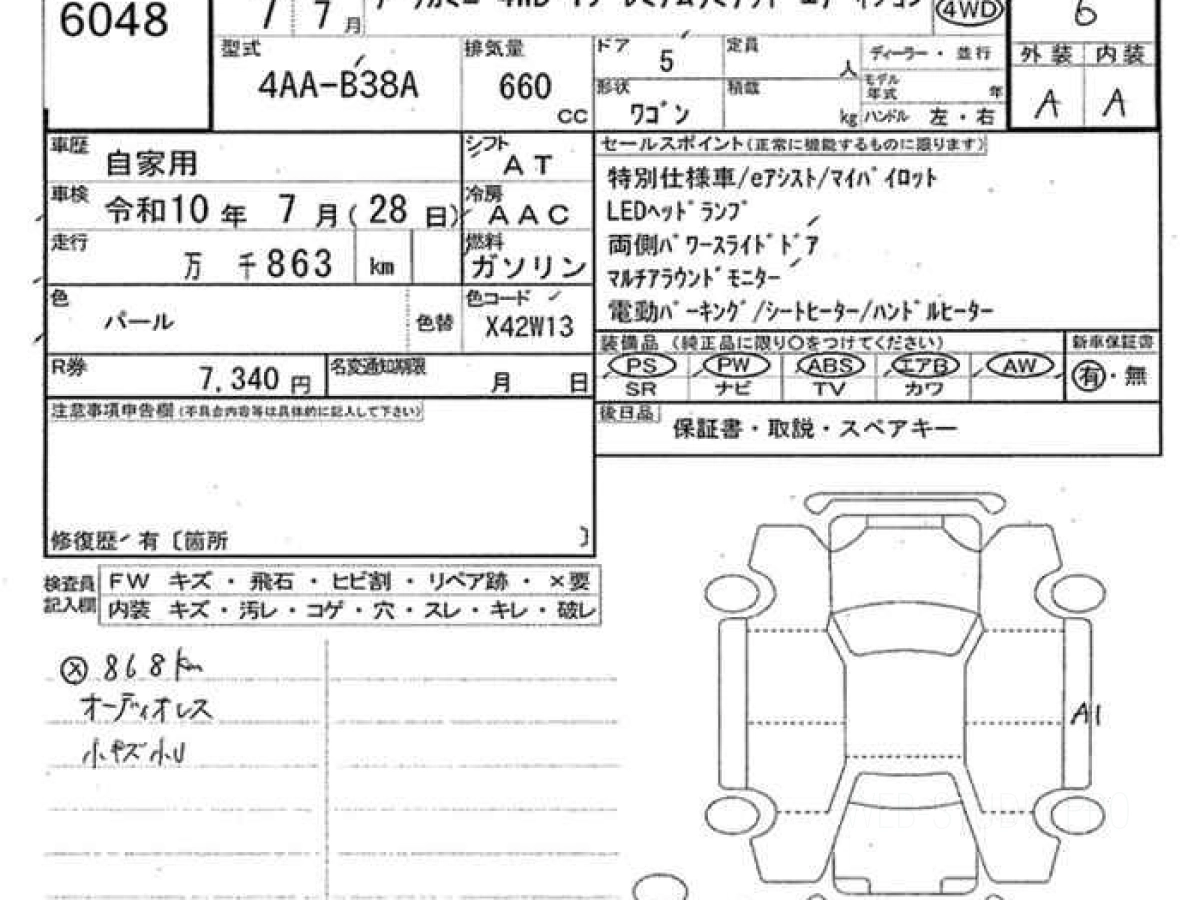 6048
7 7 月
4WD
6
型式
4AA-B38A
排気量
660
CC
ドア
5
定員
人
ディーラー・並行
外装 内装
形状
ワゴン
積載
kg
モデル
年式
年
ハンドル 左・右
A A
車歴
自家用
シフト
AT
車検
令和10年 7月(28日)
冷房
AAC
走行
万 千863 km
燃料
ガソリン
色
パール
色替
色コード
X42W13
R券
7,340円
名変通知期限
月 日
セールスポイント(正常に機能するものに限ります)
特別仕様車/eアシスト/マイパイロット
LEDヘッドランプ
両側パワースライドドア
マルチアラウンドモニター
電動パーキング/シートヒーター/ハンドルヒーター
装備品 (純正品に限り〇をつけてください)
新車保証書
PS PW ABS エアB AW
有・無
SR ナビ TV カワ
後日品
保証書・取説・スペアキー
注意事項申告欄(不具合内容等は具体的に記入して下さい)
修復歴 有〔箇所 〕
検査員
記入欄
FW キズ・飛石・ヒビ割・リペア跡・×要
内装 キズ・汚レ・コゲ・穴・スレ・キレ・破レ
ⓧ 868km
オーディオレス
小キズ小U
A1